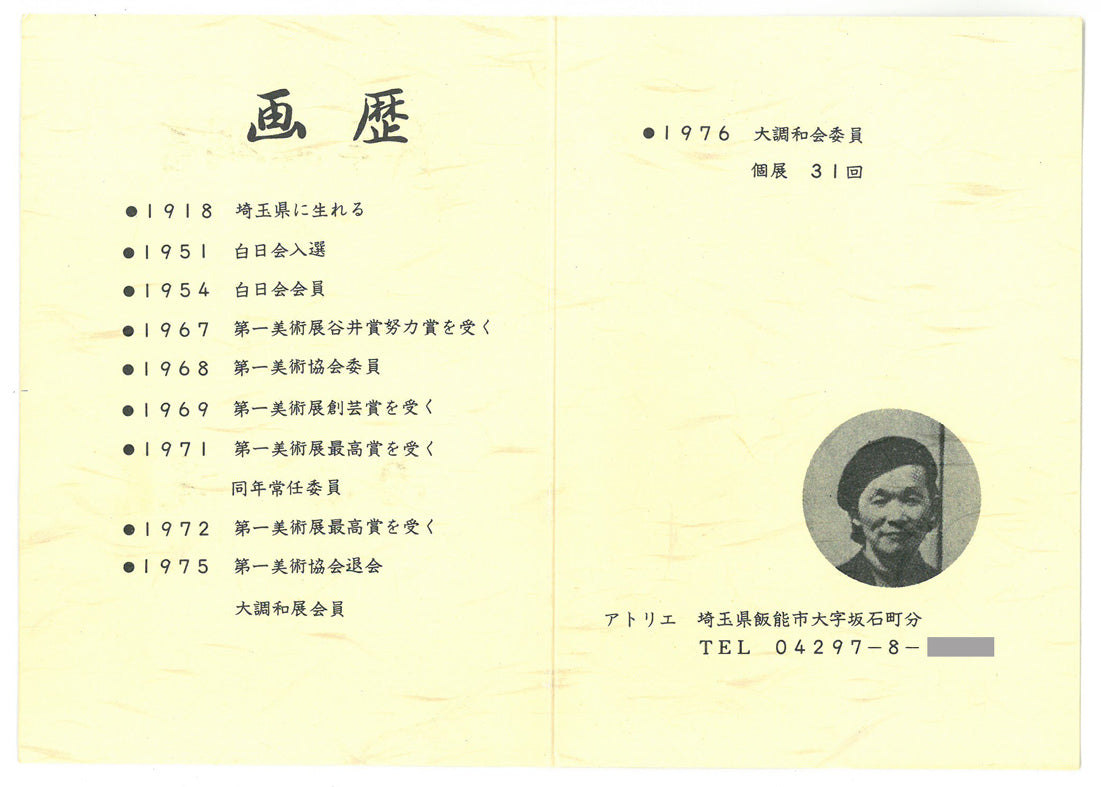 画歴
●1918 埼玉県に生れる
●1951 白日会入選
●1954 白日会会員
●1967 第一美術展谷井賞努力賞を受く
●1968 第一美術協会委員
●1969 第一美術展創芸賞を受く
●1971 第一美術展最高賞を受く
同年常任委員
●1972 第一美術展最高賞を受く
●1975 第一美術協会退会
大調和展会員
●1976 大調和会委員
個展 31回
アトリエ 埼玉県飯能市大字坂石町分
TEL 04297-8-